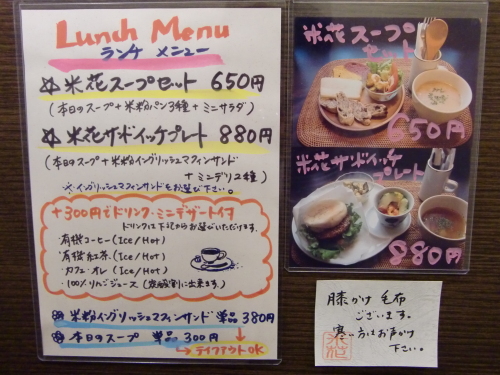 Lunch Menu
ランチ メニュー
☆米花スープセット 650円
(本日のスープ+米粉パン3種+ミニサラダ)
☆米花サンドイッチプレート 880円
(本日のスープ+米粉イングリッシュマフィンサンド
+ミニデリ2種)
※イングリッシュマフィンサンドをお選び下さい。
+300円でドリンク・ミニデザート付
ドリンクは下記からお選びいただけます。
・有機コーヒー(Ice/Hot)
・有機紅茶(Ice/Hot)
・カフェ・オレ(Ice/Hot)
・100%リンゴジュース(炭酸割に出来ます。)
米粉イングリッシュマフィンサンド 単品 380円
本日のスープ 単品 300円
テイクアウトOK
米花スープ
セット
650円
米花サンドイッチ
プレート
880円
膝かけ 毛布
ございます。
寒い方はお声かけ
下さい。
米花